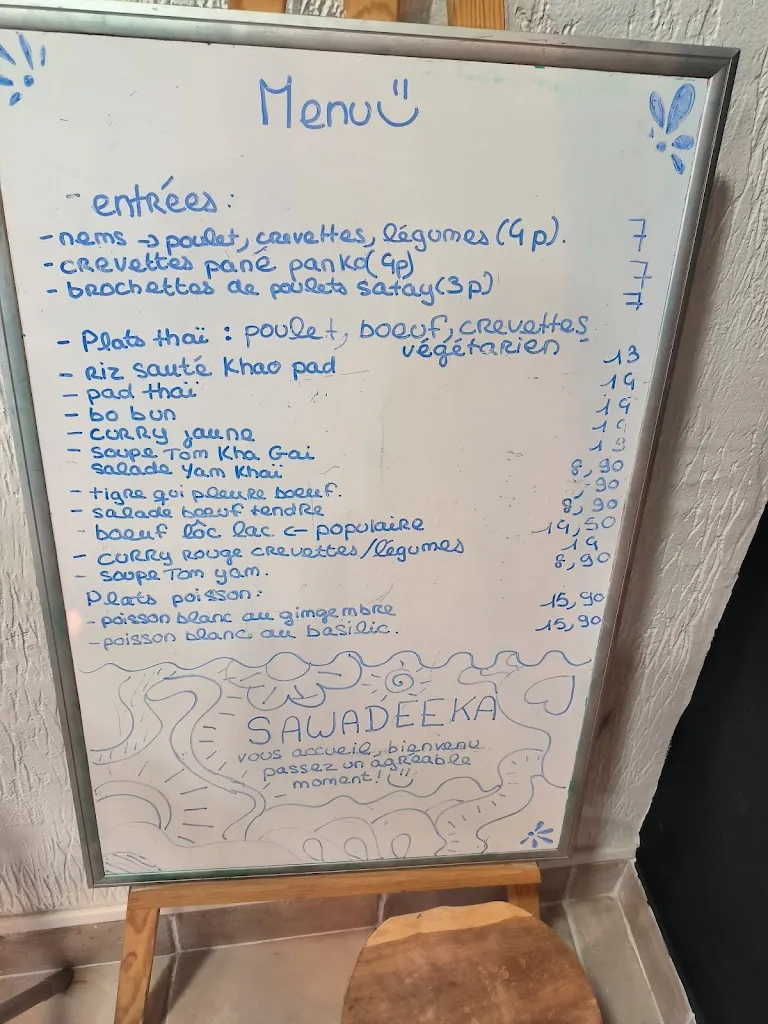 Menu
- entrées :
- nems → poulet, crevettes, légumes (4p). 7
- crevettes pané panko (4p) 7
- brochettes de poulets satay (3p) 7
- Plats thaï : poulet, boeuf, crevettes,
végétarien
- Riz sauté Khao pad 13
- pad thaï 14
- bo bun 14
- curry jaune
- soupe Tom Kha Gai
salade Yam Khaï 8,90
- tigre qui pleure boeuf.
- salade boeuf tendre 8,90
- boeuf lôc lac ← populaire 14,50
- curry rouge crevettes/légumes 14
- soupe Tom yam. 8,90
Plats poisson :
- poisson blanc au gimgembre 15,90
- poisson blanc au basilic. 15,90
SAWADEEKA
vous accueil, bienvenu
passez un agréable
moment !